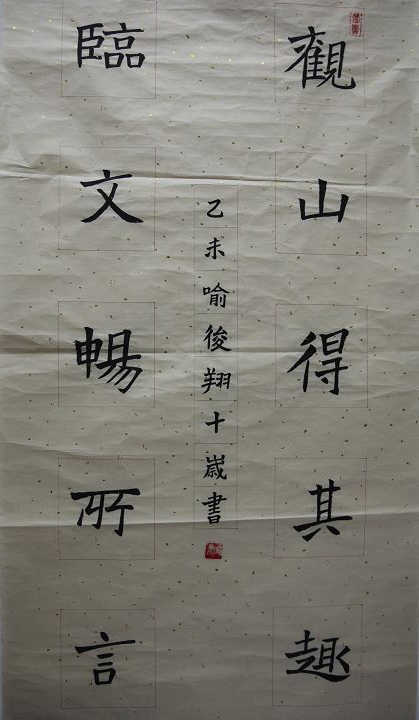 觀山得其趣
臨文暢所言
乙未喻後翔十歲書